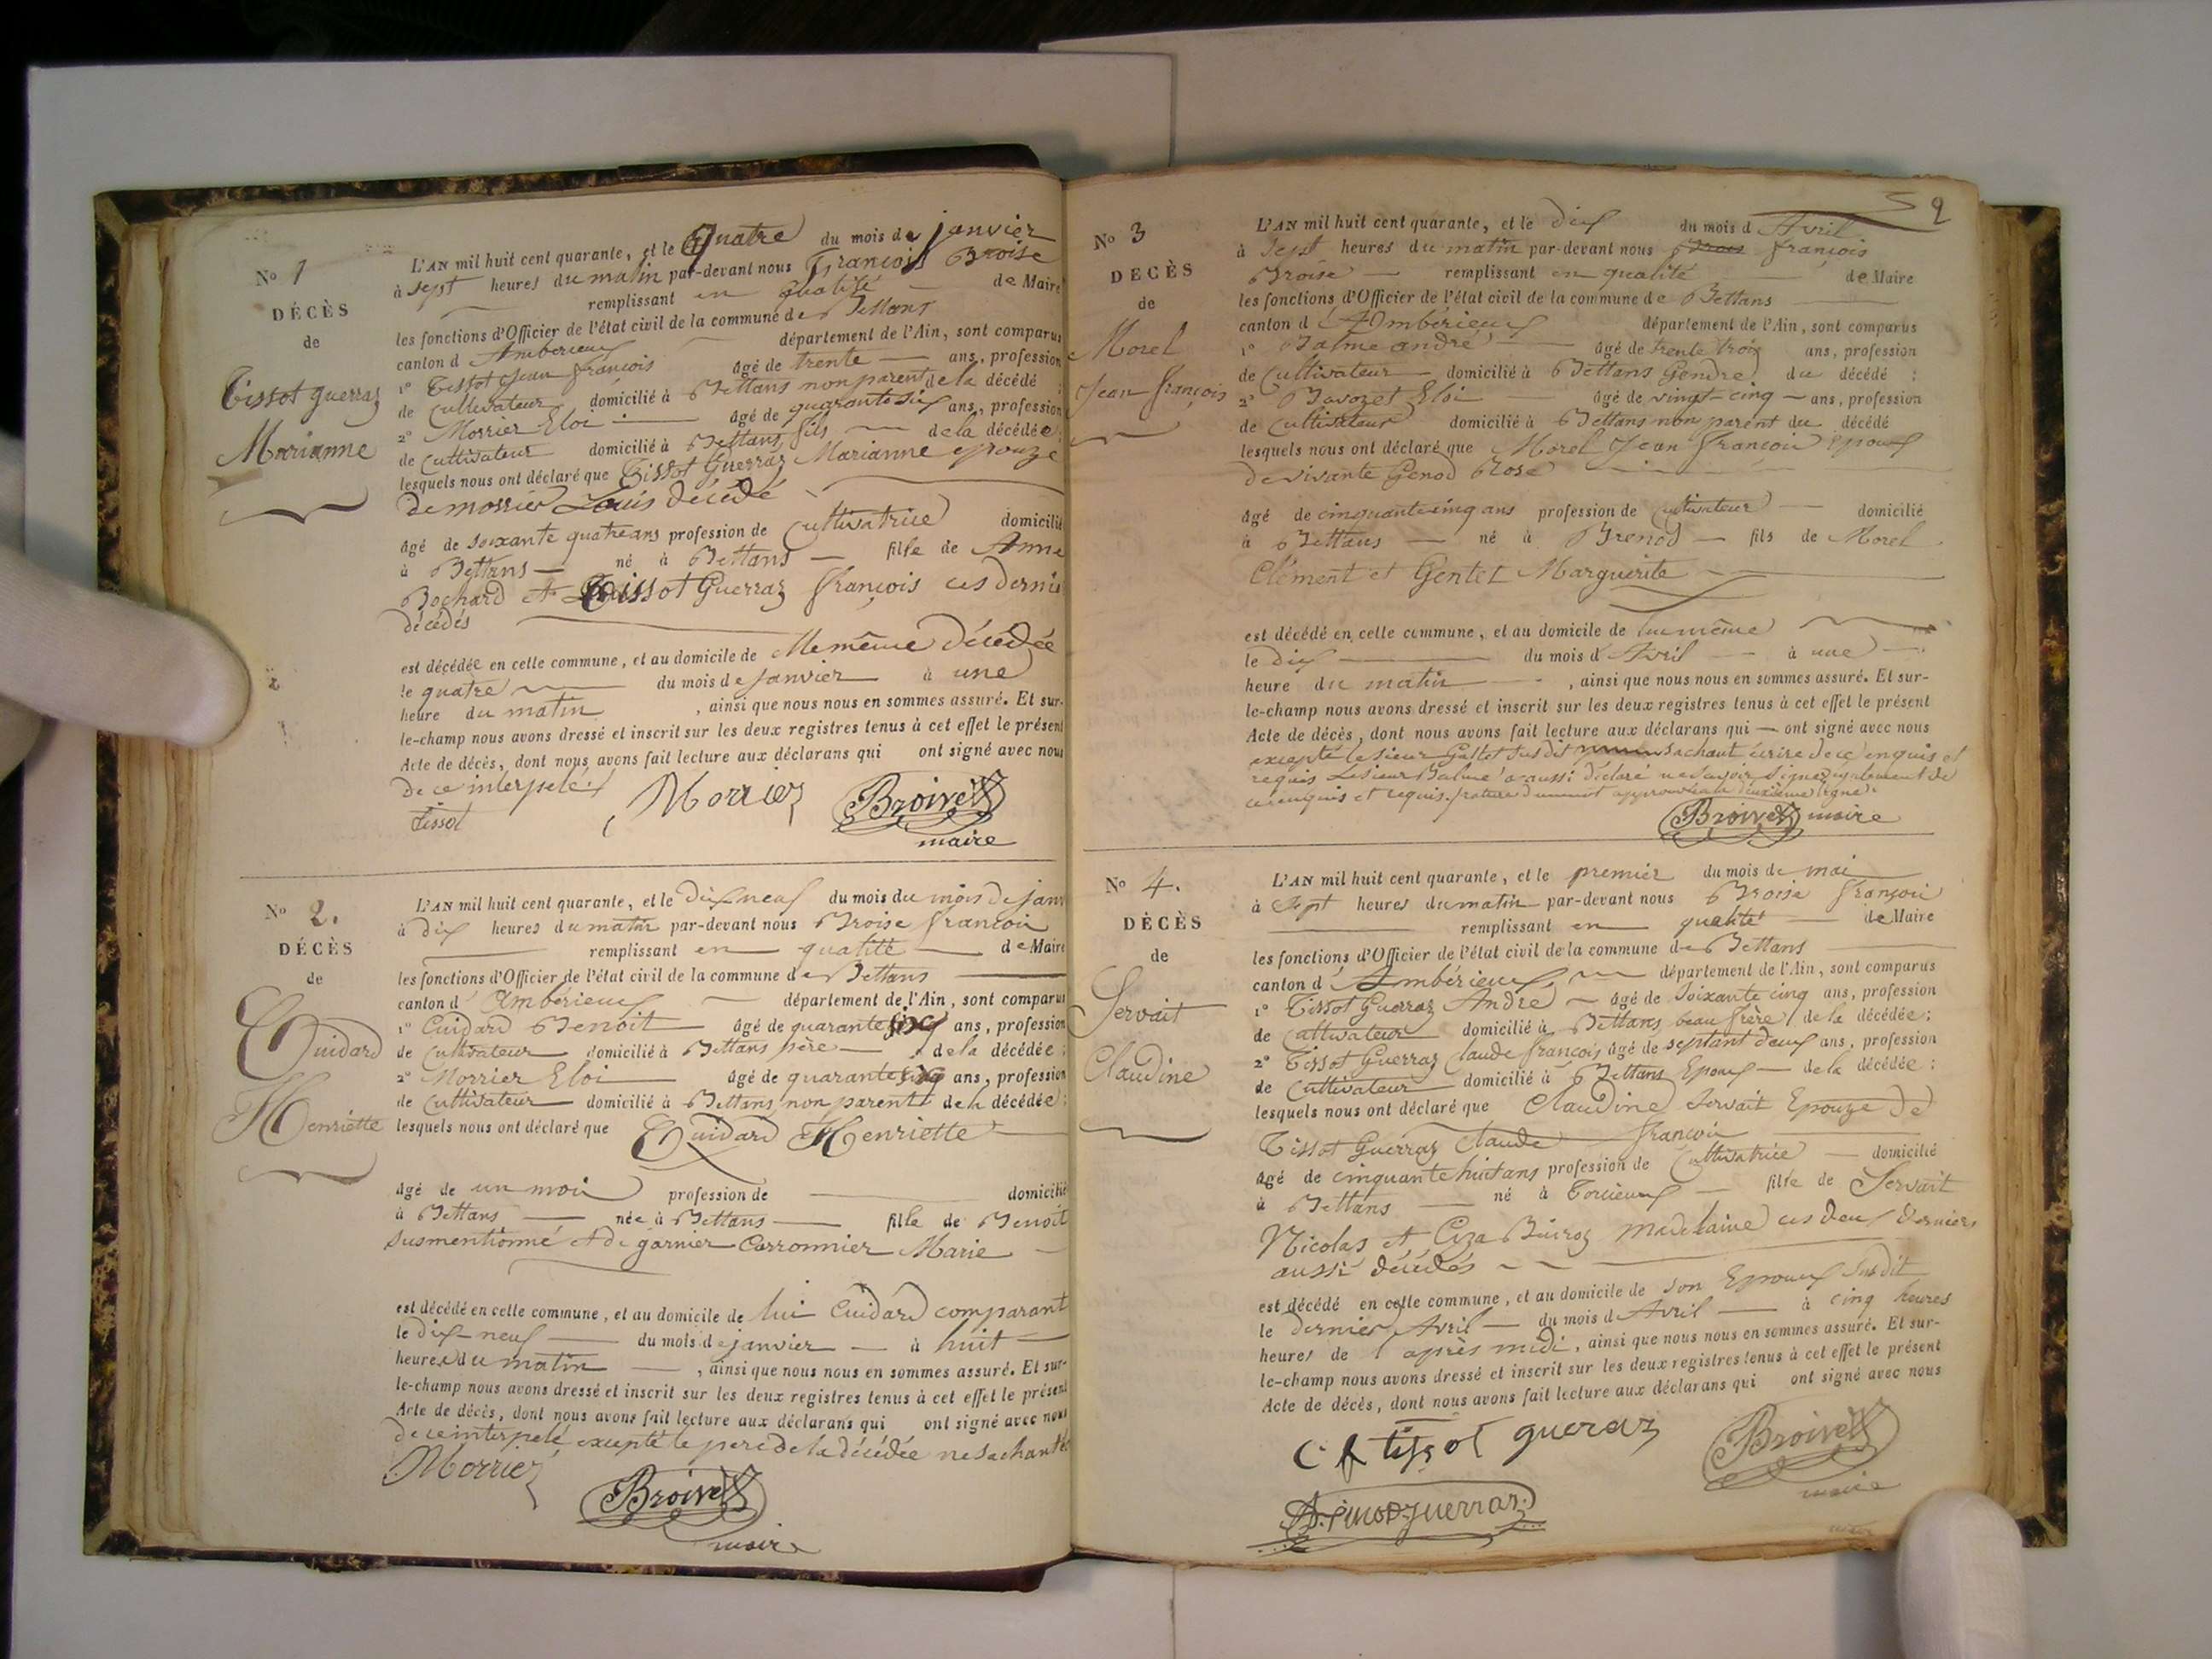 N.o 1
DÉCÈS
de
Tissot guerraz
Marianne
L'AN mil huit cent quarante, et le Quatre du mois de janvier
à sept heures du matin par-devant nous François Broise
remplissant en qualité de Maire
les fonctions d'Officier de l'état civil de la commune de Bettans
canton d'Amberieux département de l'Ain, sont comparus
1o Tissot Jean françois âgé de trente ans, profession
de Cultivateur domicilié à Bettans non parent de la décédé :
2o Morrier Eloi âgé de quarante six ans, profession
de Cultivateur domicilié à Bettans fils de la décédée
lesquels nous ont déclaré que Tissot Guerraz Marianne epouze
de morrier Louis décédé
âgé de soixante quatre ans profession de Cultivatrice domicilié
à Bettans né à Bettans fille de Anne
Bochard et Tissot Guerraz françois ces dernie
décédés
est décédée en celle commune, et au domicile de Elle même décédée
le quatre du mois de janvier à une
heure du matin, ainsi que nous nous en sommes assuré. Et sur-
le-champ nous avons dressé et inscrit sur les deux registres tenus à cet effet le présent
Acte de décès, dont nous avons fait lecture aux déclarans qui ont signé avec nous
de ce interpelé
Tissot Morrier Broise
maire
N.o 2.
DÉCÈS
de
Cuidard
Henriette
L'AN mil huit cent quarante, et le dix neuf du mois du mois de janv
à dix heures du matin par-devant nous Broise françois
remplissant en qualité de Maire
les fonctions d'Officier de l'état civil de la commune de Bettans
canton d'Ambérieux département de l'Ain, sont comparus
1o Cuidard Benoit âgé de quarante ans, profession
de Cultivateur domicilié à Bettans père de la décédée :
2o Morrier Eloi âgé de quarante ans, profession
de Cultivateur domicilié à Bettans non parent de la décédée :
lesquels nous ont déclaré que Cuidard Henriette
âgé de un mois profession de domicilié
à Bettans née à Bettans fille de Benoit
susmentionné et de garnier Carronnier Marie
est décédé en celle commune, et au domicile de lui Cuidard comparant
le dix-neuf du mois de janvier à huit
heures du matin, ainsi que nous nous en sommes assuré. Et sur-
le-champ nous avons dressé et inscrit sur les deux registres tenus à cet effet le présent
Acte de décès, dont nous avons fait lecture aux déclarans qui ont signé avec nous
de ce interpelé excepté le pere de la décédée ne sachant
Morrier Broise
maire
2
N.o 3
DÉCÈS
de
Morel
Jean françois
L'AN mil huit cent quarante, et le dix du mois d Avril
à sept heures du matin par-devant nous françois
Broise remplissant en qualité de Maire
les fonctions d'Officier de l'état civil de la commune de Bettans
canton d'Ambérieux département de l'Ain, sont comparus
1o Balme andré âgé de trente trois ans, profession
de Cultivateur domicilié à Bettans Gendre du décédé :
2o Bavozet Eloi âgé de vingt-cinq ans, profession
de Cultivateur domicilié à Bettans non parent du décédé
lesquels nous ont déclaré que Morel Jean françois Epoux
de vivante Genod Rose
âgé de cinquante cinq ans profession de Cultivateur domicilié
à Bettans né à Brenod fils de Morel
Clément et Gentet Marguerite
est décédé en celle commune, et au domicile de lui même
le dix du mois d'Avril à une
heure du matin, ainsi que nous nous en sommes assuré. Et sur-
le-champ nous avons dressé et inscrit sur les deux registres tenus à cet effet le présent
Acte de décès, dont nous avons fait lecture aux déclarans qui ont signé avec nous
excepté le sieur susdit sachant écrire de ce enquis et
requis Le sieur Balme a aussi déclaré ne savoir signer également de
ce enquis et requis. rature approuvée à la deuxième ligne.
Broise maire
N.o 4.
DÉCÈS
de
Servait
Claudine
L'AN mil huit cent quarante, et le premier du mois de mai
à Sept heures du matin par-devant nous Broise françois
remplissant en qualité de Maire
les fonctions d'Officier de l'état civil de la commune de Bettans
canton d'Ambérieux, département de l'Ain, sont comparus
1o Tissot Guerraz André âgé de soixante cinq ans, profession
de Cultivateur domicilié à Bettans beau frère de la décédée ;
2o Tissot Guerraz Claude françois âgé de septant deux ans, profession
de Cultivateur domicilié à Bettans Epoux de la décédée :
lesquels nous ont déclaré que Claudine Servait Epouze de
Tissot Guerraz Claude françois
âgé de cinquante huit ans profession de Cultivatrice domicilié
à Bettans né à Torcieux fille de Servait
Nicolas et Ciza Buiroz Madelaine ces deux derniers
aussi décédés
est décédé en celle commune, et au domicile de son Epoux susdit
le dernier Avril du mois d Avril à cinq heures
heures de l'après midi, ainsi que nous nous en sommes assuré. Et sur-
le-champ nous avons dressé et inscrit sur les deux registres tenus à cet effet le présent
Acte de décès, dont nous avons fait lecture aux déclarans qui ont signé avec nous
C f tissot gueraz Broise
maire